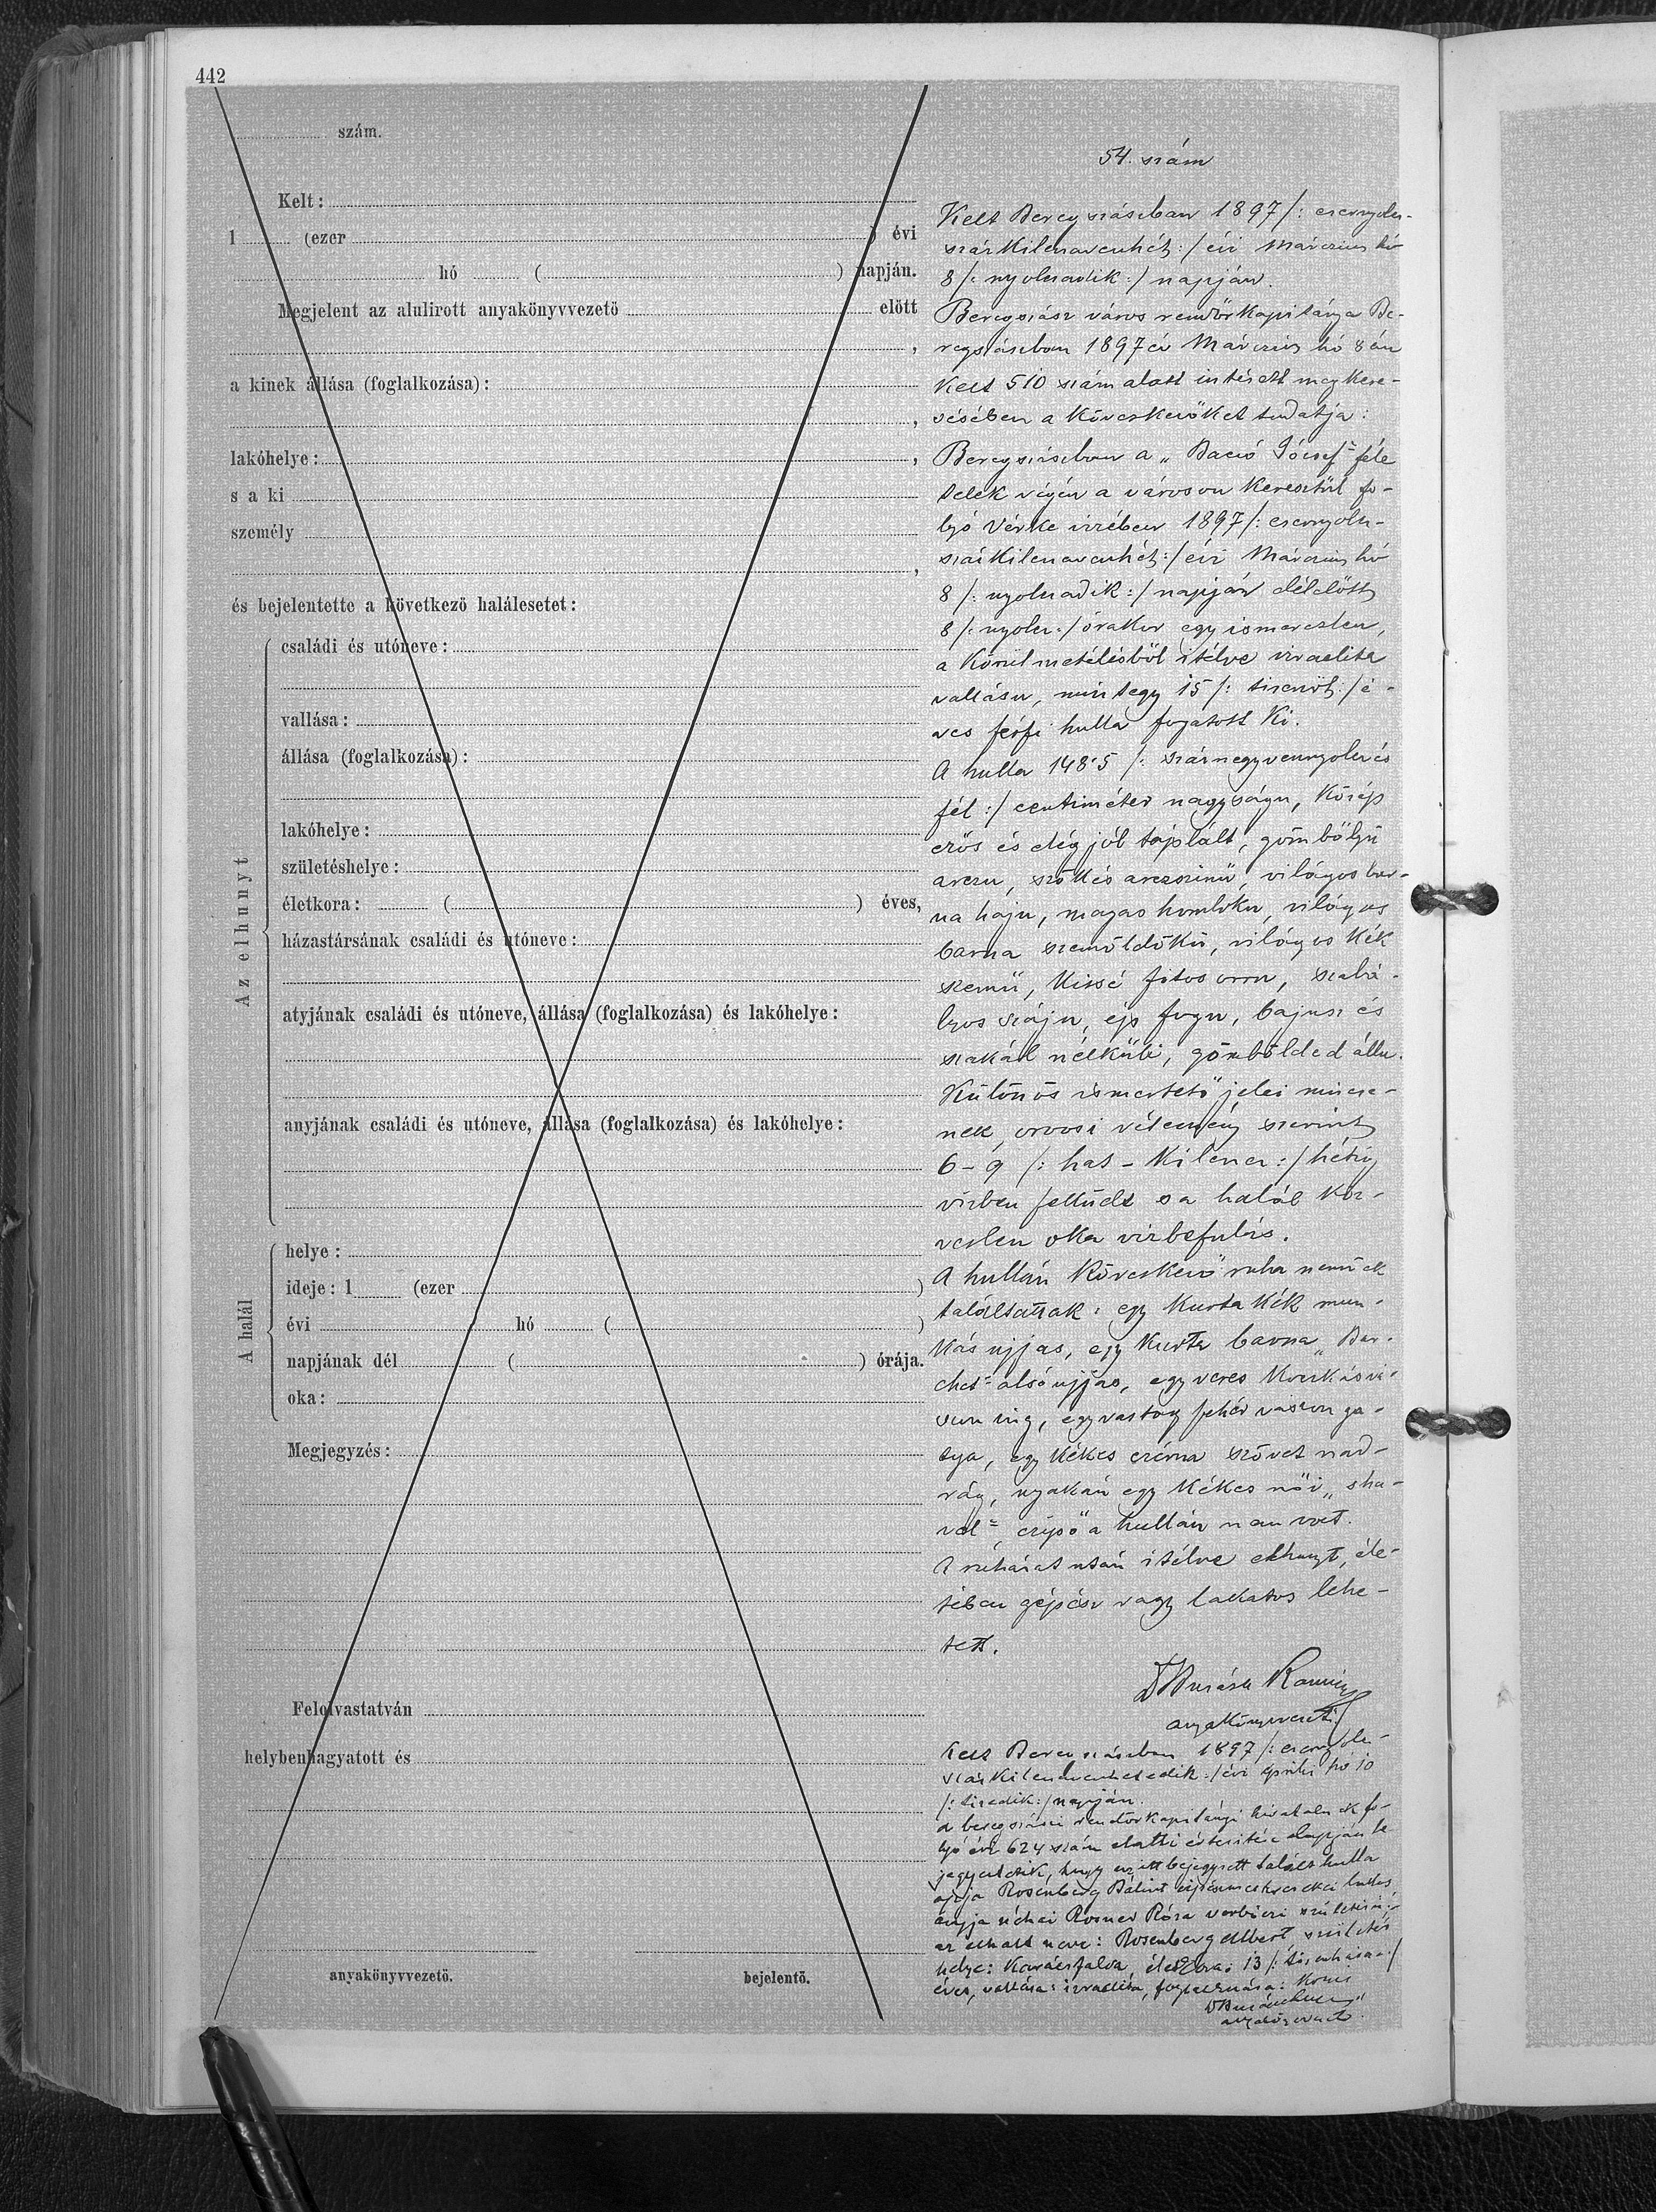 442
szám.
Kelt:
1 (ezer ) évi
hó ( ) napján.
Megjelent az alulirott anyakönyvvezető előtt
,
a kinek állása (foglalkozása):
,
lakóhelye: ,
s a ki
személy
,
és bejelentette a következő halálesetet:
Az elhunyt
családi és utóneve:
vallása:
állása (foglalkozása):
lakóhelye:
születéshelye:
életkora: ( ) éves,
házastársának családi és utóneve:
atyjának családi és utóneve, állása (foglalkozása) és lakóhelye:
anyjának családi és utóneve, állása (foglalkozása) és lakóhelye:
A halál
helye:
ideje: 1 (ezer )
évi hó ( )
napjának dél ( ) órája.
oka:
Megjegyzés:
Felolvastatván
helybenhagyatott és
anyakönyvvezető. bejelentő.
54. szám
Kelt Beregszászban 1897 /: ezernyolcz-
százkilenczvenhét :/ évi Márczius hó
8 /: nyolczadik :/ napján.
Beregszász város rendőrkapitánya Be-
regszászban 1897 év Márczius hó 8án
kelt 510 szám alatt intézett megkere-
sésében a következőket tudatja:
Beregszászban a „ József" féle
telek végén a városon keresztül fo-
lyó Vérke vizében 1897 /: ezernyolcz-
százkilenczvenhét :/ évi Márczius hó
8 /: nyolczadik :/ napján délelőtt
8 /: nyolcz :/ órakor egy ismeretlen,
a körülmetélésből itélve izraelita
vallásu, mintegy 15 /: tizenöt :/ é-
ves férfi hulla fogatott ki.
A hulla 148·5 /: száznegyvennyolcz és
fél :/ centiméter nagyságu, közép
erős és elég jól táplált, gömbölyü
arczu, szőkés arczszinü, világos bar-
na haju, magas homloku, világos
barna szemöldökü, világos kék
szemü, kissé fitos orru, szabá-
lyos száju, ép fogu, bajusz és
szakál nélküli, gömbölded állu.
Különös ismertető jelei nincse-
nek, orvosi vélemény szerint
6-9 /: hat - kilencz :/ hétig
vizben feküdt s a halál köz-
vetlen oka vizbefulás.
A hullán következő ruha nemüek
találtattak: egy kurta kék mun-
kás ujjas, egy kurta barna „Bar-
chet" alsó ujjas, egy veres koczkás vá-
szon ing, egy vastag fehér vászon ga-
tya, egy kékes czérna szövet nad-
rág, nyakán egy kékes női „sha-
vel" czipő a hullán nem volt.
A ruházat után itélve elhunyt, éle-
tében gépész vagy lakatos lehe-
tett.
anyakönyvvezető
Kelt Beregszászban 1897 /: ezernyolcz-
százkilenczvenhetedik :/ évi április hó 10
/: tizedik :/ napján.
A beregszászi rendőrkapitányi hivatalnak fo-
lyó évi 624 szám alatti értesitése alapján be
jegyeztetik, hogy az itt bejegyzett talált hulla
apja Rosenberg Bálint lakos
anyja néhai Rosner Róza verbőczi születésü,
az elhalt neve: Rosenberg Albert, születés
helye: Karácsfalva, életkora: 13 /: tizenhárom :/
éves, vallása: izraelita, foglalkozása:
anyakönyvvezető